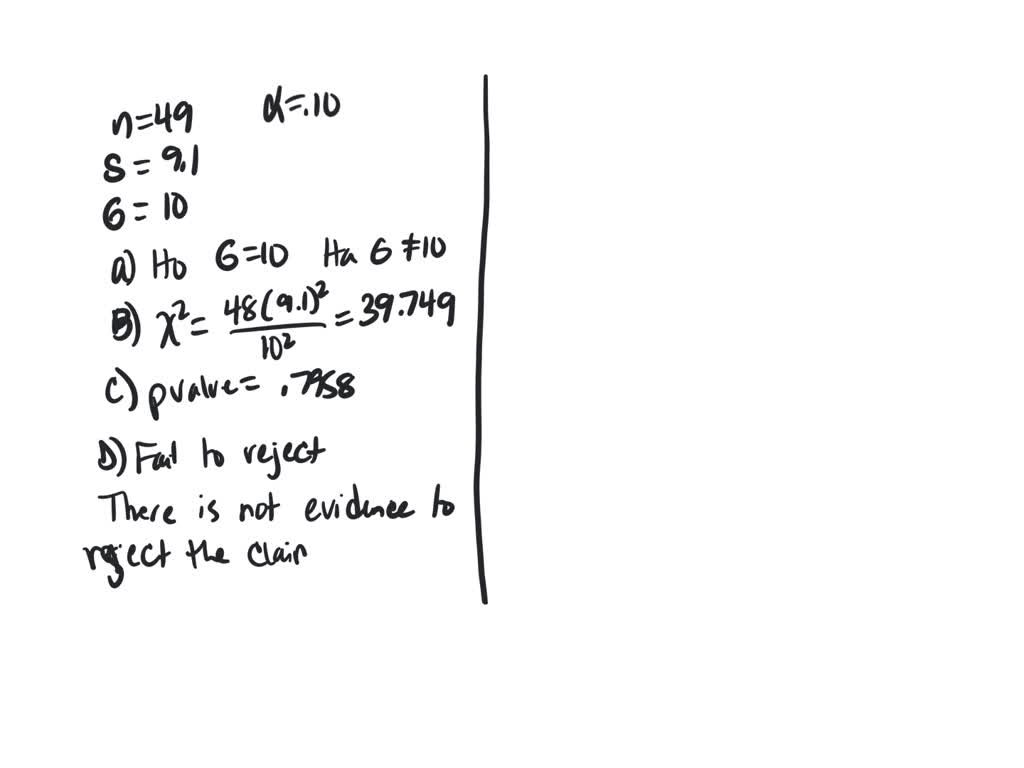 n=49 α=.10
S = 9.1
σ = 10
a) Ho σ=10 Ha σ≠10
B) χ² = 48(9.1)²/10² = 39.749
C) pvalue = .7958
D) Fail to reject
There is not evidence to
reject the claim